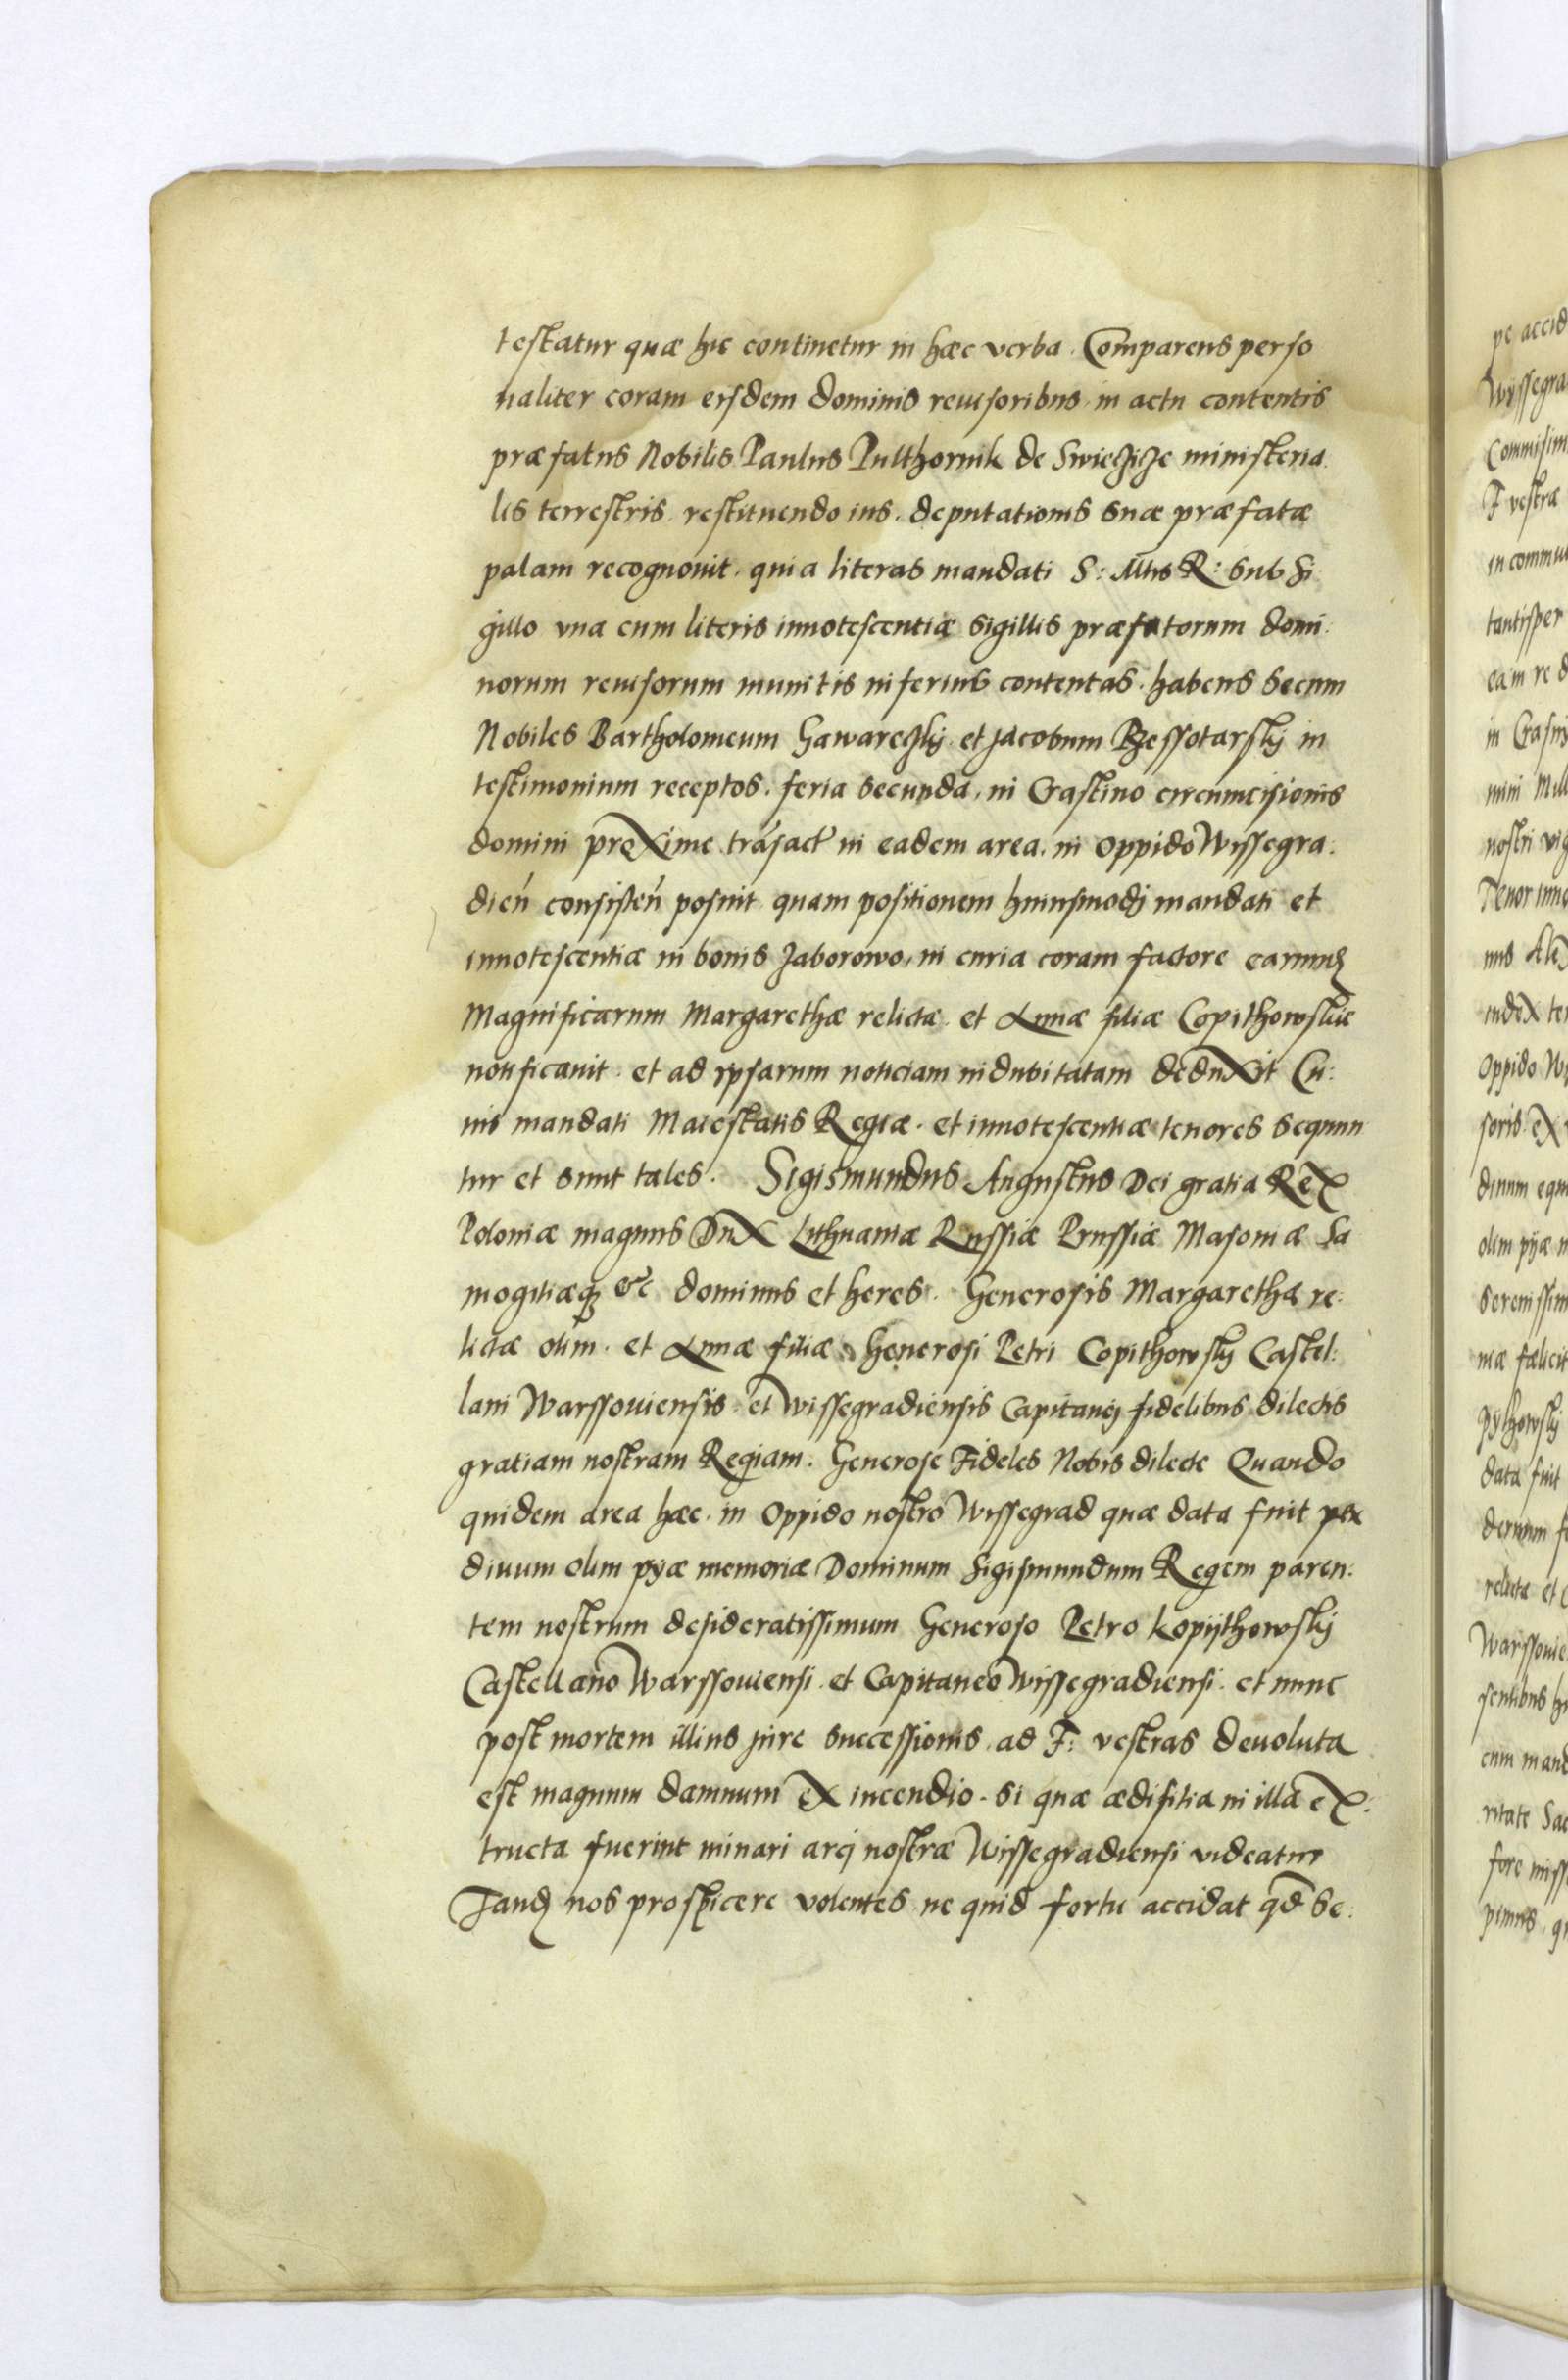 testatur quæ hic continetur in hæc verba. Comparens perso
naliter coram eisdem dominis reuisoribus in actu contentis
præfatus Nobilis Paulus Pulthornik de Swieczicze ministeria.
lis terrestris restituendo ius. deputationis suæ præfatæ
palam recognouit. quia literas mandati S: Mtis R: sub si
gillo vna cum literis innotescentiæ sigillis præfatorum domi:
norum reuisorum munitis inferius contentas. habens secum
Nobiles Bartholomeum Gawareczky et Jacobum Rzessotarsky in
testimonium receptos. feria secunda, in Crastino circumcisionis
domini proxime trásact in eadem area. in oppido Wissegra.
dień consisteń posuit quam positionem huiusmodj mandati et
innotescentiæ in bonis Jaborowo, in curia coram factore earundem
Magnificarum Margarethæ relictæ et Annæ filiæ Copithowskie
notificauit. et ad ipsarum noticiam indubitatam deduxit Cu:
ius mandati Maiestatis Regiæ. et innotescentiæ tenores sequun
tur et sunt tales. Sigismundus Augustus Dei gratia Rex
Poloniæ magnus Dux Lithuaniæ Russiæ Prussiæ Masouiæ Sa
mogitiæq; &c dominus et heres. Generosis Margarethæ re:
lictæ olim. et Annæ filiæ Generosi Petri Copithowsky Castel:
lani Warssouiensis et Wissegradiensis Capitanej fidelibus dilectis
gratiam nostram Regiam. Generose Fideles Nobis dilecte Quando
quidem area hæc. in Oppido nostro Wissegrad quæ data fuit per
diuum olim pyæ memoriæ Dominum Sigismundum Regem paren:
tem nostrum desideratissimum Generoso Petro Kopijthowsky
Castellano Warssouiensi. et Capitaneo Wissegradiensi. et nunc
post mortem illius jure successionis ad F: vestras deuoluta
est magnum damnum ex incendio. si quæ ædifitia in illa ex:
tructa fuerint minari arcj nostræ Wissegradiensi videatur
Tandem nos prospicere volentes ne quid forte accidat qd se.
pe accid
Wyssegra
Commisim
F vestræ
in commu
tantisper
eam re d
in Crasny
mini Mill
nostri vig
Tenor inno
nus Alex
iudex te
Oppido W
soris ex
dinum equ
olim pyæ m
Serenissim
niæ fælicit
pythowsky
data fuit
derunm f
relictæ et C
Warssouie
sentibus h
cum mand
ritate Sac
fore miss
pimus q